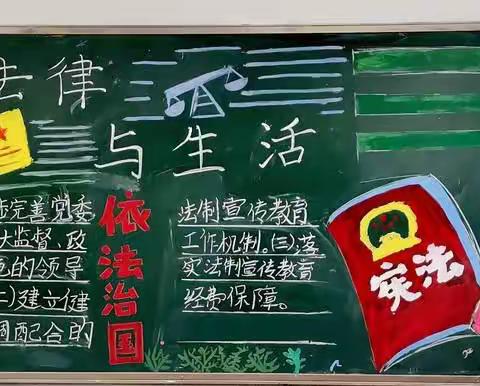 法律
与生活
步完善党委
大监督、政
的领导
二)建立健
调配合的
依法治国
法制宣传教育
工作机制。(三)落
实法制宣传教育
经费保障。
宪法